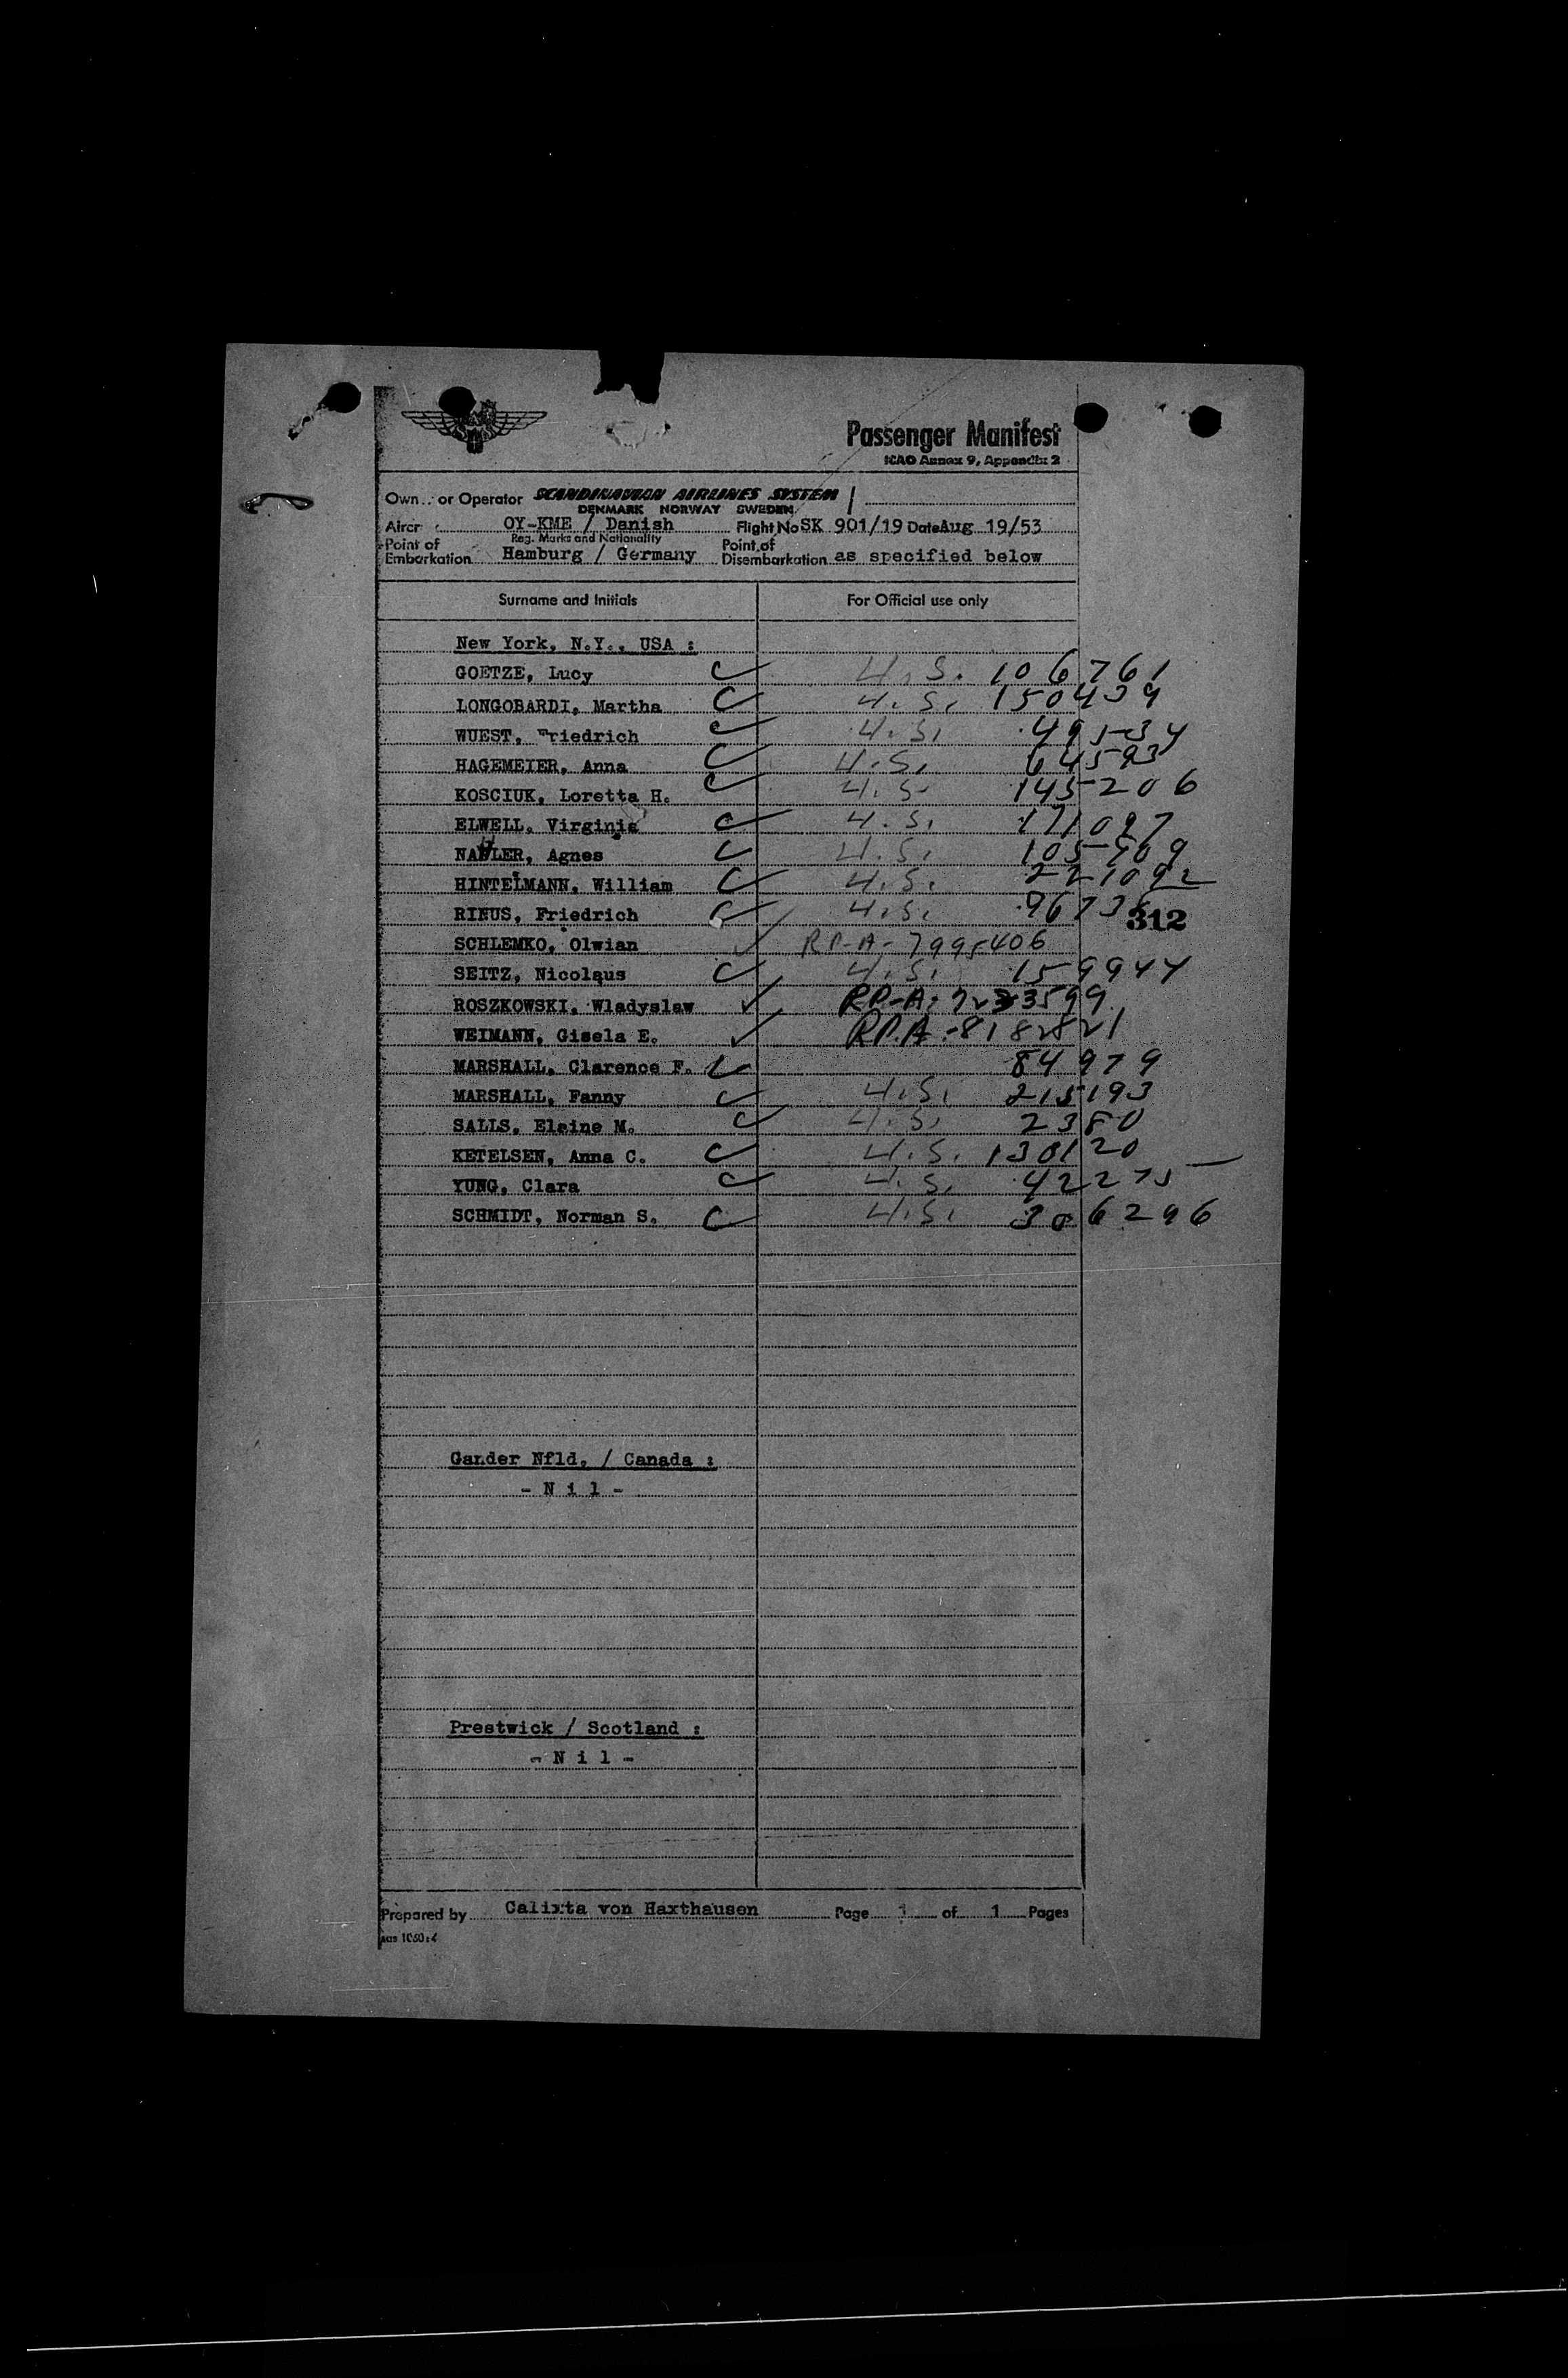 Passenger Manifest
ICAO Annex 9, Appendix 2
Own or Operator SCANDINAVIAN AIRLINES SYSTEM
DENMARK NORWAY SWEDEN
Aircr OY-KME / Danish Flight No SK 901/19 Date Aug 19/53
Reg. Marks and Nationality
Point of Embarkation Hamburg / Germany Point of Disembarkation as specified below
Surname and Initials For Official use only
New York, N.Y., USA :
GOETZE, Lucy U.S. 106761
LONGOBARDI, Martha U.S. 150439
WUEST, Friedrich U.S. 49534
HAGEMEIER, Anna U.S. 64593
KOSCIUK, Loretta H. U.S. 145206
ELWELL, Virginia U.S. 171097
Agnes U.S.
HINTELMANN, William U.S. 221092
RINUS, Friedrich U.S.
312
SCHLEMKO, Olwian RP-A-7995406
SEITZ, Nicolaus U.S. 159944
ROSZKOWSKI, Wladyslaw RP-A-
WEIMANN, Gisela E. RP.A-8182821
MARSHALL, Clarence F. 84979
MARSHALL, Fanny U.S. 215193
SALLS, Elaine M. U.S. 2380
KETELSEN, Anna C. U.S. 130120
YUNG, Clara U.S. 42275
SCHMIDT, Norman S. U.S. 306296
Gander Nfld. / Canada :
- N i l -
Prestwick / Scotland :
- N i l -
Prepared by Calixta von Haxthausen Page 1 of 1 Pages